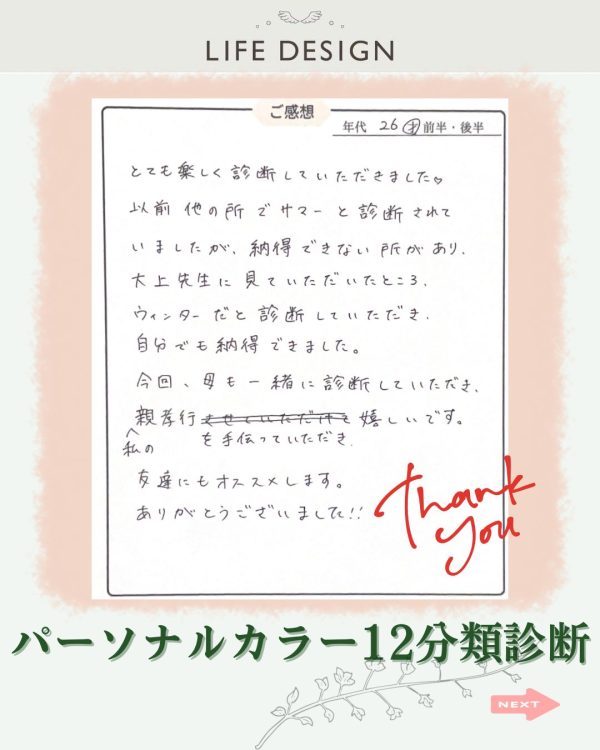 LIFE DESIGN
ご感想
年代 26才 前半・後半
とても楽しく診断していただきました♡
以前他の所でサマーと診断されて
いましたが、納得できない所があり、
大上先生に見ていただいたところ、
ウィンターだと診断していただき、
自分でも納得できました。
今回、母も一緒に診断していただき、
親孝行 嬉しいです。
私の を手伝っていただき、
友達にもオススメします。
ありがとうございました!!
thank
you
パーソナルカラー12分類診断
NEXT